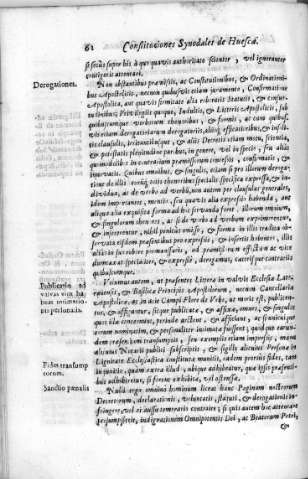 62 Constituciones Synodales de Huesca.
si secus super his à quoquam authoritate scienter, vel ignoranter
contigerit attentari.
Derogationes.
Non obstantibus præmissis, ac Constitutionibus, & Ordinationi-
bus Apostolicis, necnon quibusvis etiam iuramento, Confirmatione
Apostolica, aut quavis firmitate alia roboratis Statutis, &
tudinibus; Privilegijs quoque, Indultis, & Litteris Apostolicis, sub
quibuscunque verborum tenoribus, & formis, ac cum quibus-
vis etiam derogatoriarum derogatorijs,
vis clausulis, irritantibusque, & alijs Decretis
& potestatis plenitudine paribus, in genere, vel in specie, seu alias
quomodolibet in contrarium præmissorum concessis, confirmatis, &
innovatis. Quibus omnibus, & singulis, etiam si pro illorum deroga-
tione de illis
vidua, ac de verbo ad verbum, non autem per clausulas generales,
idem importantes, mentio, seu quævis alia expressio habenda, aut
aliqua alia exquisita forma ad hoc servanda foret, illorum omnium,
& singulorum tenores, ac si de verbo ad verbum exprimerentur,
& insererentur, nihil penitus omisso, & forma in illis tradita ob-
servata eisdem præsentibus pro expressis, & insertis habentes, illis
aliàs in suo robore permansuris, ad præmissorum effectum ac vice
derogamus, & expressè derogamus, cæterisque contrarijs
quibuscunque.
Publicatio ad
valvas
Volumus autem, ut præsentes Litteræ in valvis Ecclesiæ Late-
ranensis, & Basilicæ Principis Apostolorum, necnon Cancellariæ
Apostolicæ, ac in acie Campi Floræ de Urbe, ut moris est, publicen-
tur, & affigantur, sicque publicatæ, & affixæ, omnes, & singulos,
quos illæ concernunt, perinde arctent, & afficiant, ac si unicuique
eorum nominatim, & personaliter intimatæ fuissent; quodque earum-
dem præsentium transumptis, seu exemplis etiam impressis, manu
alicuius Notarij publici subscriptis, & sigillo alicuius Personæ in
Dignitate Ecclesiastica constitutæ munitis, eadem prorsus fides, tam
in iudicio, quàm extra illud, ubique adhibeatur, quæ ipsis præsenti-
bus adhiberetur, si forent exhibitæ, vel ostensæ.
Fides transump
torum.
Sanctio pœnalis
Nulli ergo omnino hominum liceat hanc Paginam nostrorum
Decretorum, declarationis, voluntatis, statuti, & derogationis in-
fringere, vel ei ausu temerario contraire; si quis autem hoc attentare
præsumpserit, indignationem Omnipotentis Dei, ac Beatorum Petri,
&